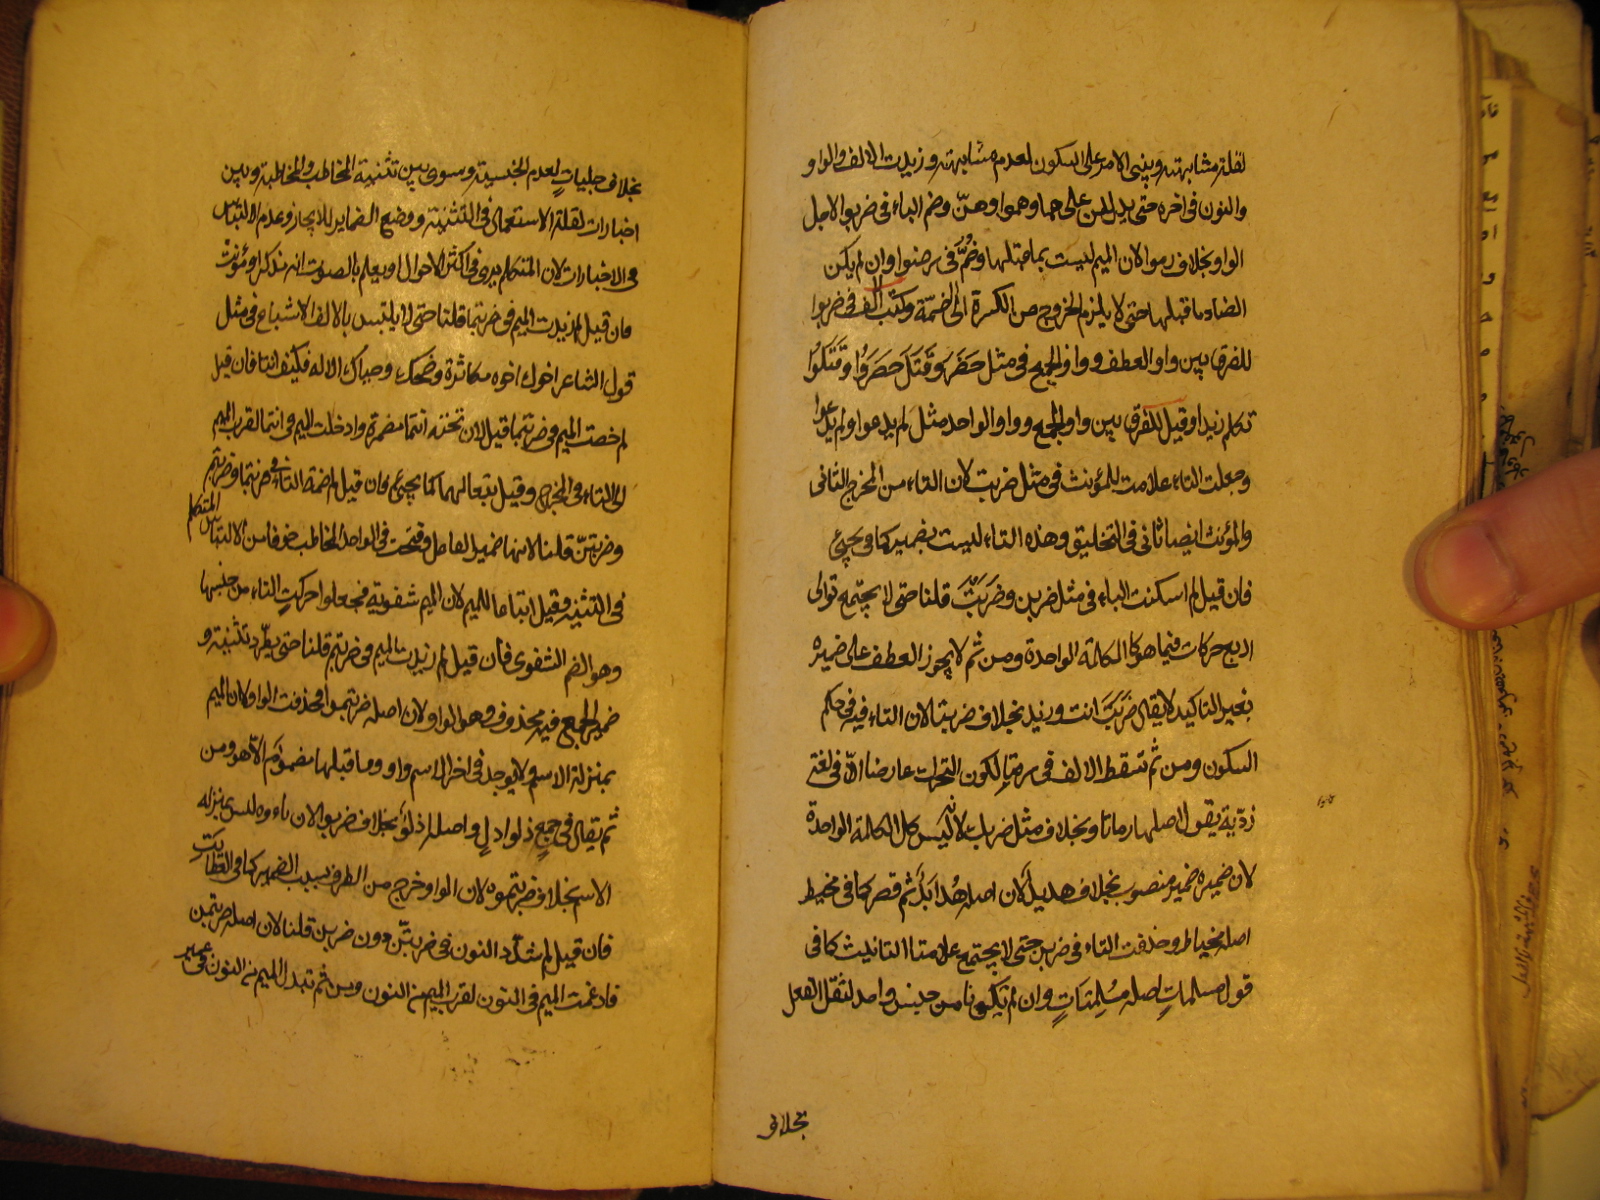 لقلة مشابهته وبني الامر على السكون لعدم مشابهته وزيدت الالف والواو
والنون في اخره حتى يدللن على هما وهموا وهنّ وضم الباء في ضربوا لاجل
الواو بخلاف رموا لان الميم ليست بما قبلها وضُمَّ في رضوا وان لم يكن
الضاد ما قبلها حتى لا يلزم الخروج من الكسرة الى الضمّة وكتب الف في ضربوا
للفرق بين واو العطف وواو الجمع في مثل حَضَرَ وَقَتَلَ حضروا وقتلوا
تكلم زيد او قيل للفرق بين واو الجمع وواو الواحد مثل لم يدعوا ولم يدعوا
وجعلت التاء علامت للمؤنث في مثل ضربت لان التاء من المخرج الثانى
والمؤنث ايضا ثانى في التخليق وهذه التاء ليست بضمير كما في يجئ
فان قيل لم اسكنت الباء في مثل ضربن وضَرَبْتَ قلنا حتى لا يجتمع توالى
اربع حركات فيما هو كالكلمة الواحدة ومن ثم لا يجوز العطف على ضميره
بغير التاكيد لا يقال ضَرَبْتَ انت وزيد بخلاف ضربتا لان التاء فيه في حكم
السكون ومن ثم تسقط الالف في رمتا لكون التحرك عارضا الّا في لغة
ردّية يقول اصلها رماتا وبخلاف مثل ضربك لانه ليس كالكلمة الواحدة
لان ضميره ضمير منصوب بخلاف هدبد لان اصله هُدابد ثم قصر كما في مخيط
اصله مخياط وحذفت التاء في ضربن حتى لا يجتمع علامتا التانيث كما في
قول مسلماتٍ اصله مُسْلِمَتاتٍ وان لم تكونا من جنس واحد لثقل الفعل
بخلاف
بخلاف حبليات لعدم الجنسية وسوى بين تثنية المخاطب والمخاطبة وبين
اخبارات لقلة الاستعمال في التثنية ووضع الضماير للايجاز وعدم الالتباس
في الاخبارات لان المتكلم يرى في اكثر الاحوال او يعلم بالصوت انه مذكر او مؤنث
فان قيل لم زيدت الميم في ضربتما قلنا حتى لا يلتبس بالالف الاشباع في مثل
قول الشاعر اخوك اخوه مكاثرة وضحك وحياك الاله فكيف انتا فان قيل
لم خصت الميم في ضربتما قيل لان تحته انتما مضمرة وادخلت الميم في انتما لقرب الميم
الى التاء في المخرج وقيل تبعا لهما كما يجئ فان قيل لم ضمة التاء في ضربتما وضربتم
وضربتنّ قلنا لانها ضمير الفاعل وفتحت في الواحد المخاطب خوفا من الالتباس المتكلم
في التثنية وقيل اتباعا للميم لان الميم شفوية فجعلوا حركت التاء من جنسها
وهو الضم الشفوى فان قيل لم زيدت الميم في ضربتم قلنا حتى يطرد تثنيته و
ضمير الجمع فيه محذوف وهو الواو لان اصله ضربتموا فحذفت الواو لان الميم
بمنزلة الاسم ولا يوجد في اخر الاسم واو وما قبلها مضموم الّا هو ومن
ثم يقال في جمع دلو ادلٍ واصله ادلُوٌ بخلاف ضربوا لان باءه ليس بمنزلة
الاسم بخلاف ضربتموه لان الواو خرج من الطرف بسبب الضمير كما في العظايت
فان قيل لم شدّد النون في ضربتنّ دون ضربن قلنا لان اصله ضربتمن
فادغمت الميم في النون لقرب الميم من النون ومن ثم تبدل الميم من النون في عمبر